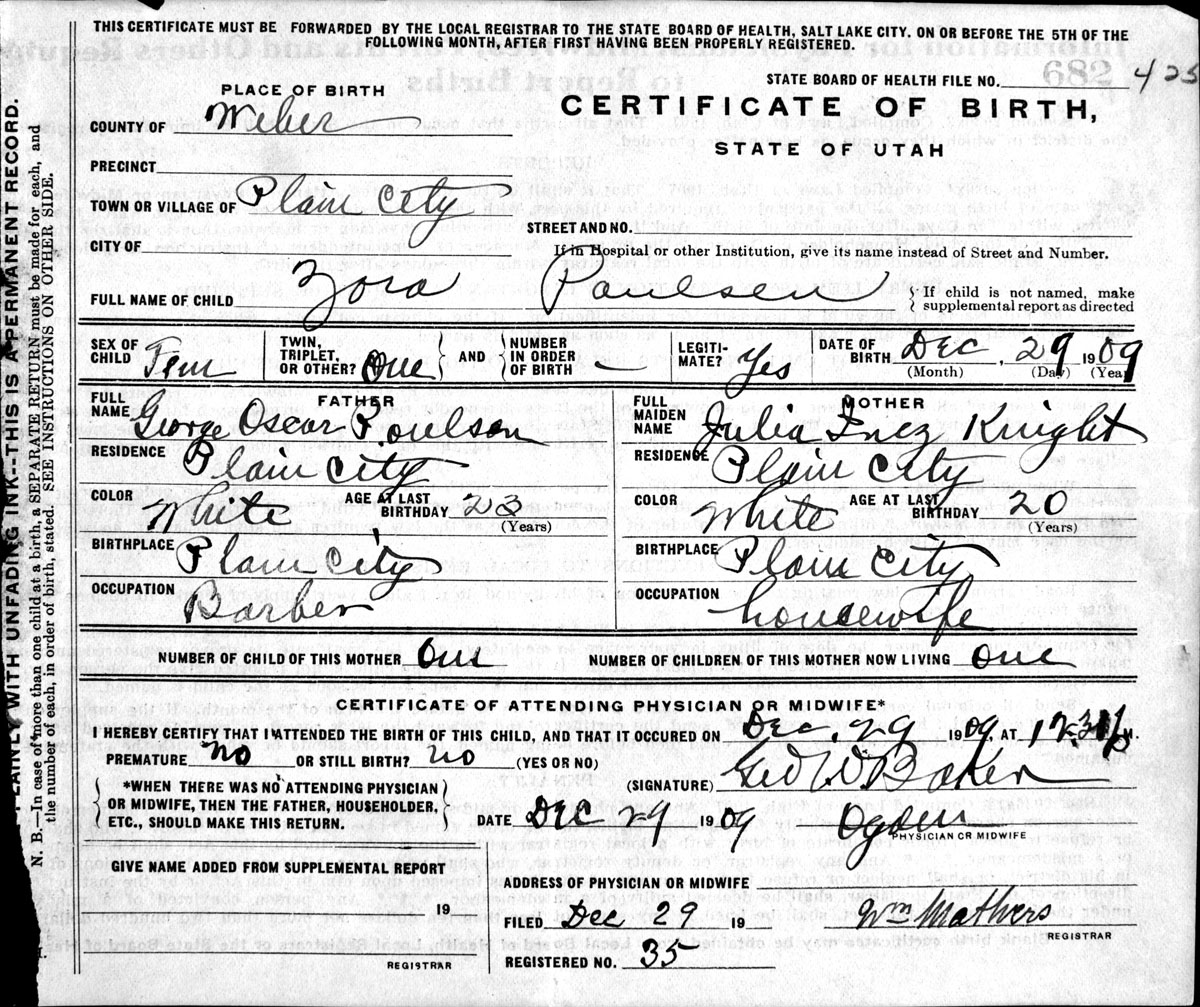 THIS CERTIFICATE MUST BE FORWARDED BY THE LOCAL REGISTRAR TO THE STATE BOARD OF HEALTH, SALT LAKE CITY. ON OR BEFORE THE 5TH OF THE
FOLLOWING MONTH, AFTER FIRST HAVING BEEN PROPERLY REGISTERED.
STATE BOARD OF HEALTH FILE NO. 425
682
PLACE OF BIRTH
CERTIFICATE OF BIRTH,
STATE OF UTAH
COUNTY OF Weber
PRECINCT
TOWN OR VILLAGE OF Plain City
STREET AND NO.
CITY OF
If in Hospital or other Institution, give its name instead of Street and Number.
FULL NAME OF CHILD Zora Paulsen { If child is not named, make
supplemental report as directed
SEX OF CHILD Fem TWIN, TRIPLET, OR OTHER? One { AND } NUMBER IN ORDER OF BIRTH — LEGITI-MATE? Yes DATE OF BIRTH Dec, 29 1909
(Month) (Day) (Year)
FATHER
FULL NAME George Oscar Poulson
RESIDENCE Plain City
COLOR White AGE AT LAST BIRTHDAY 23
(Years)
BIRTHPLACE Plain City
OCCUPATION Barber
MOTHER
FULL MAIDEN NAME Julia Inez Knight
RESIDENCE Plain City
COLOR White AGE AT LAST BIRTHDAY 20
(Years)
BIRTHPLACE Plain City
OCCUPATION housewife
NUMBER OF CHILD OF THIS MOTHER One NUMBER OF CHILDREN OF THIS MOTHER NOW LIVING One
CERTIFICATE OF ATTENDING PHYSICIAN OR MIDWIFE*
I HEREBY CERTIFY THAT I ATTENDED THE BIRTH OF THIS CHILD, AND THAT IT OCCURED ON Dec, 29 1909, AT M.
PREMATURE no OR STILL BIRTH? no (YES OR NO)
(SIGNATURE) Geo W Baker
{ *WHEN THERE WAS NO ATTENDING PHYSICIAN
OR MIDWIFE, THEN THE FATHER, HOUSEHOLDER,
ETC., SHOULD MAKE THIS RETURN. }
DATE Dec 29 1909 Ogden
PHYSICIAN OR MIDWIFE
GIVE NAME ADDED FROM SUPPLEMENTAL REPORT
19
REGISTRAR
ADDRESS OF PHYSICIAN OR MIDWIFE
FILED Dec 29 19 Wm Mathers
REGISTRAR
REGISTERED NO. 35
PLAINLY WITH UNFADING INK--THIS IS A PERMANENT RECORD.
N. B.—In case of more than one child at a birth, a SEPARATE RETURN must be made for each, and
the number of each, in order of birth, stated. SEE INSTRUCTIONS ON OTHER SIDE.